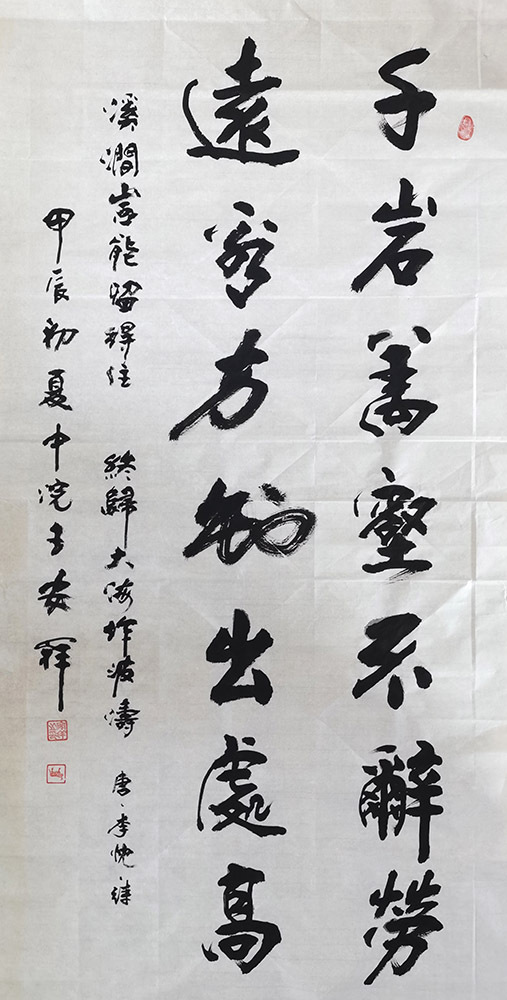 千岩萬壑不辭勞
遠看方知出處高
溪澗豈能留得住 終歸大海作波濤 唐·李忱詩
甲辰初夏中浣